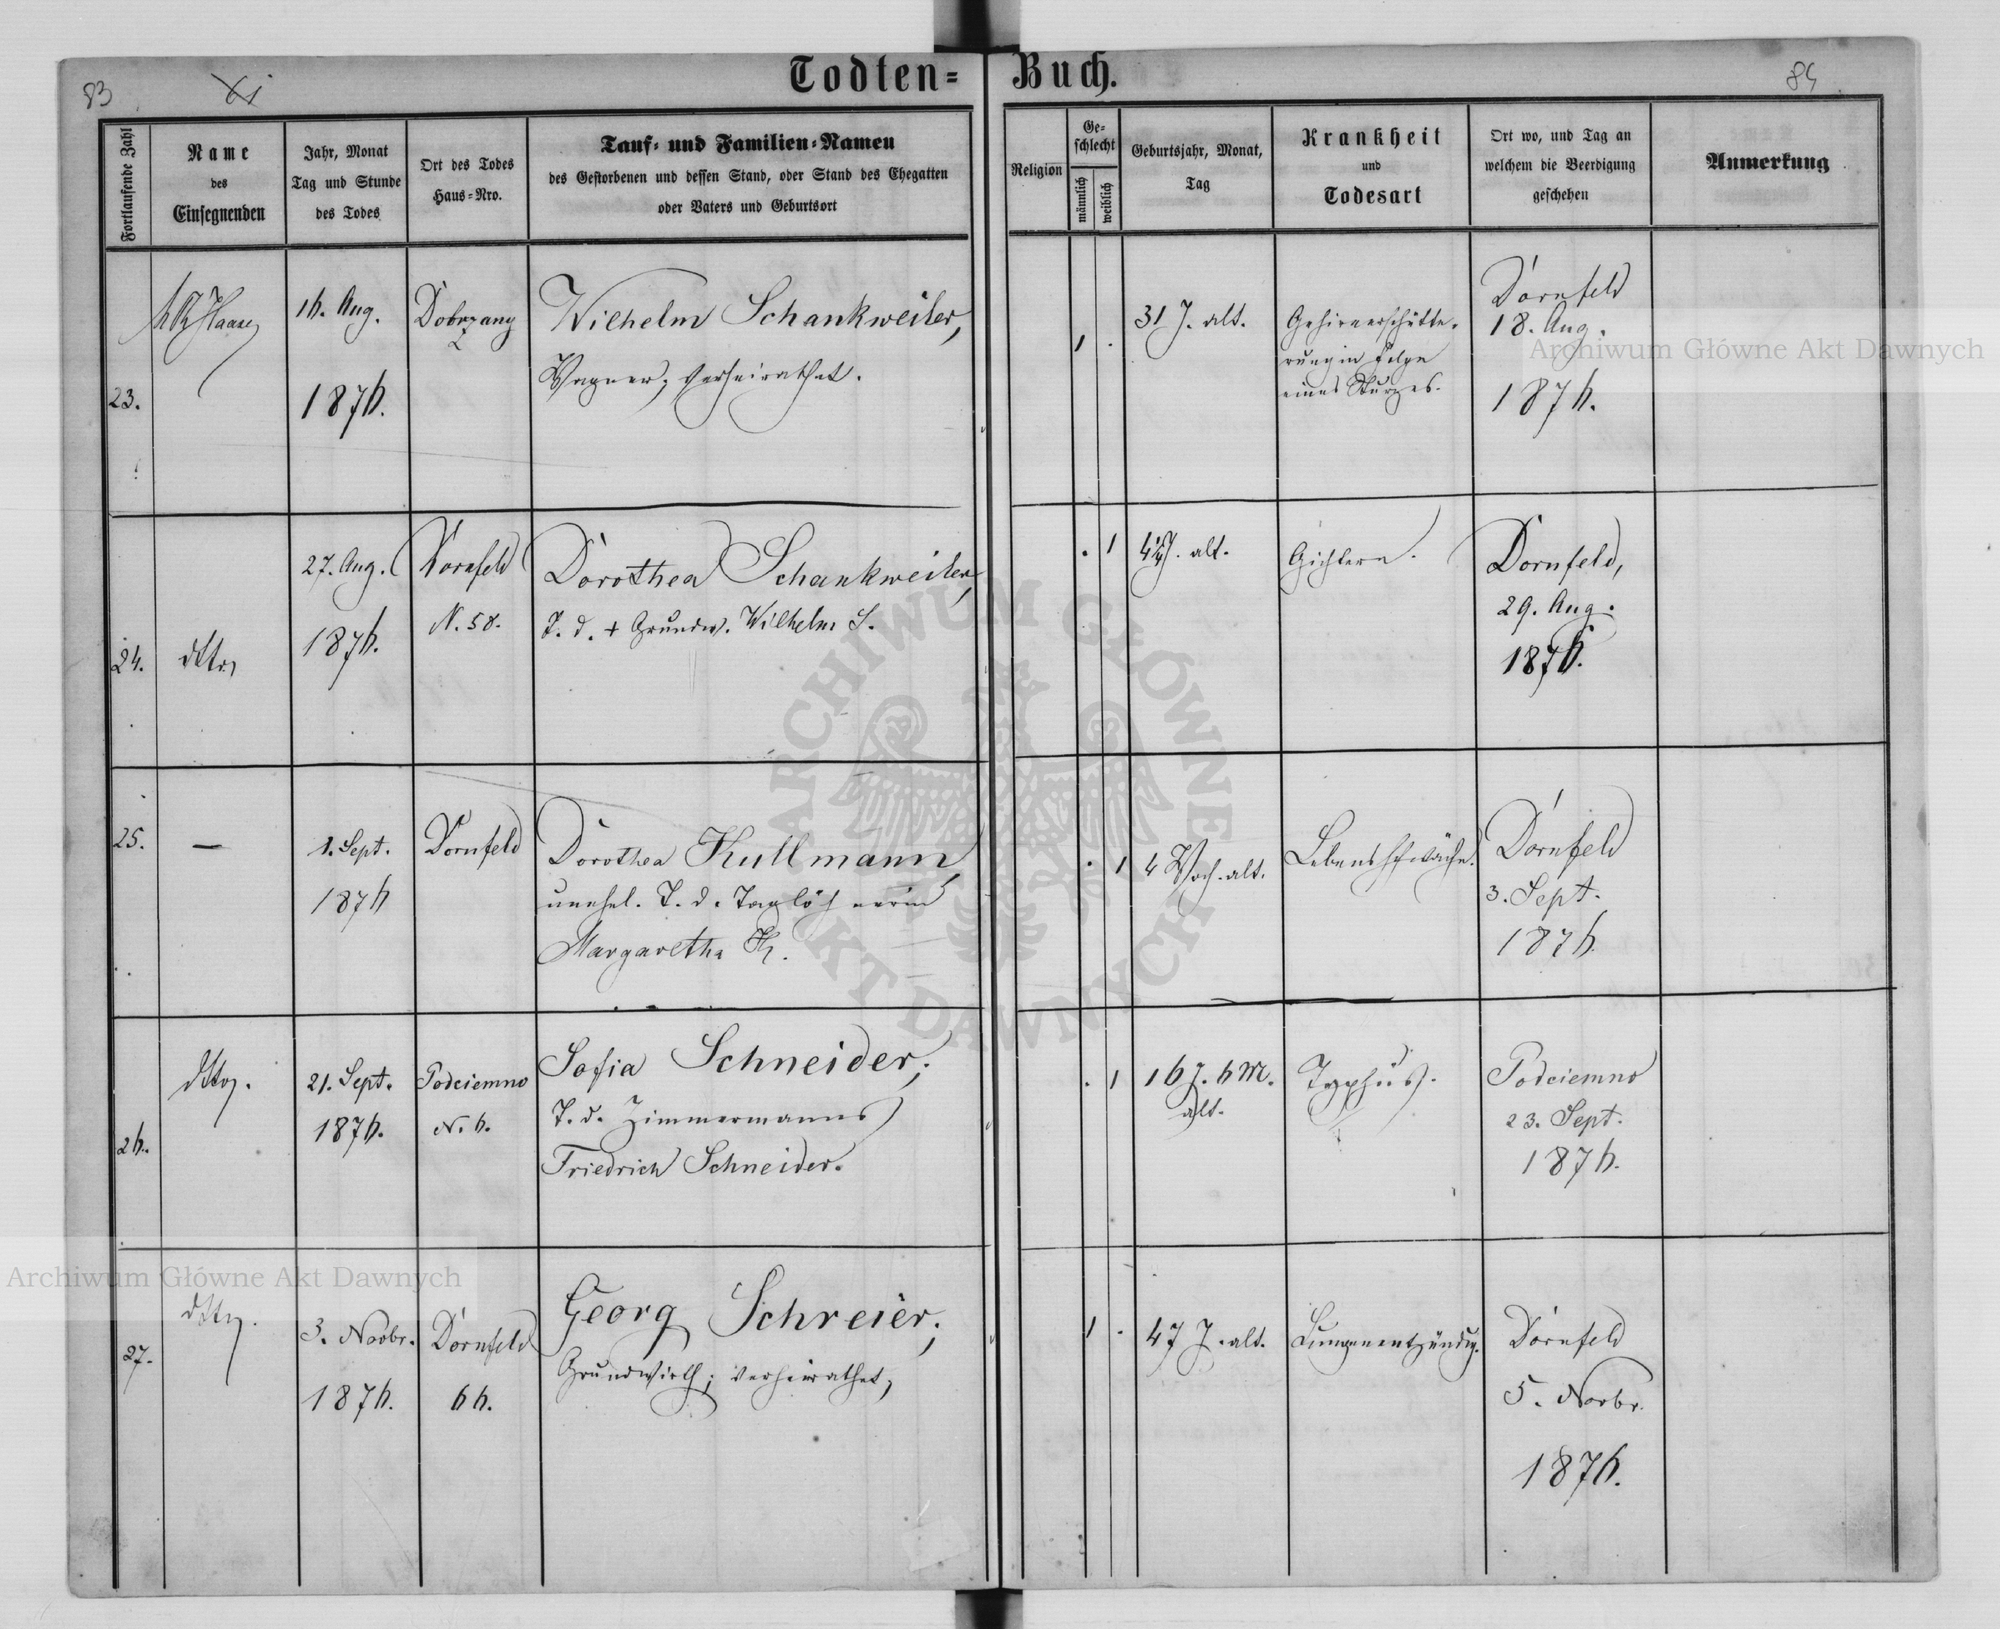 83
Xi
Todten-
Buch.
84
Fortlaufende Zahl
Name
des
Einsegnenden
Jahr, Monat
Tag und Stunde
des Todes
Ort des Todes
Haus-Nro.
Tauf- und Familien-Namen
des Gestorbenen und dessen Stand, oder Stand des Ehegatten
oder Vaters und Geburtsort
Religion
Ge-
schlecht
männlich
weiblich
Geburtsjahr, Monat,
Tag
Krankheit
und
Todesart
Ort wo, und Tag an
welchem die Beerdigung
geschehen
Anmerkung
23.
Haase
16. Aug.
1876.
Dobrzany
Wilhelm Schankweiler,
Wagner, verheirathet.
1 .
31 J. alt.
Gehirnerschütte-
rung in Folge
eines Sturzes.
Dornfeld
18. Aug.
1876.
24.
dtto
27. Aug.
1876.
Dornfeld
N. 58.
Dorothea Schankweiler,
T. d. + Grundw. Wilhelm S.
. 1
J. alt.
Gichtern.
Dornfeld,
29. Aug.
1876.
25.
—
1. Sept.
1876
Dornfeld
Dorothea Kullmann,
unehel. T. d. Taglöhnerin
Margaretha K.
. 1
4 Woch. alt.
Lebensschwäche.
Dornfeld
3. Sept.
1876.
26.
dtto.
21. Sept.
1876.
Podciemno
N. 6.
Sofia Schneider,
T. d. Zimmermanns
Friedrich Schneider.
. 1
16 J. 6 M.
alt.
Typhus.
Podciemno
23. Sept.
1876.
27.
dtto.
3. Novbr.
1876.
Dornfeld
66.
Georg Schreier,
Grundwirth, verheirathet,
1 .
47 J. alt.
Lungenentzündg.
Dornfeld
5. Novbr.
1876.
Archiwum Główne Akt Dawnych
ARCHIWUM GŁÓWNE AKT DAWNYCH
Archiwum Główne Akt Dawnych